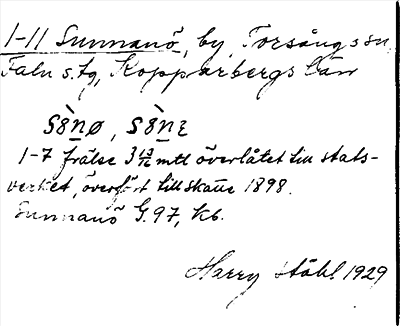 1-11 Sunnanö, by, Torsångs sn
Falu s. tg, Kopparbergs län
sònø, sònɛ
1-7 frälse 3 13/72 mtl överlåtet till stats-
verket, överfört till skatte 1898.
Sunnanö G. 97, Kb.
Harry Ståhl 1929